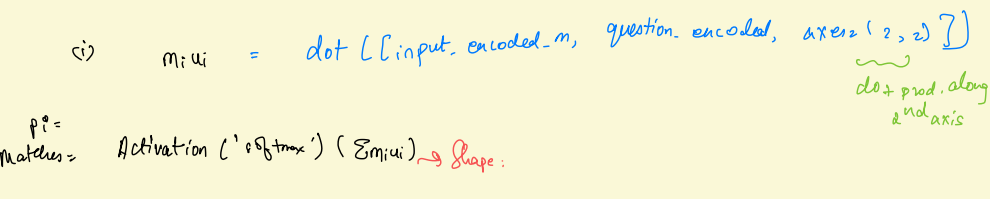 (i) miui = dot ([input_encoded_m, question_encoded, axes=(2,2)])
dot prod. along
2nd axis
pi =
Matches = Activation ('softmax') (Σmiui) → Shape: